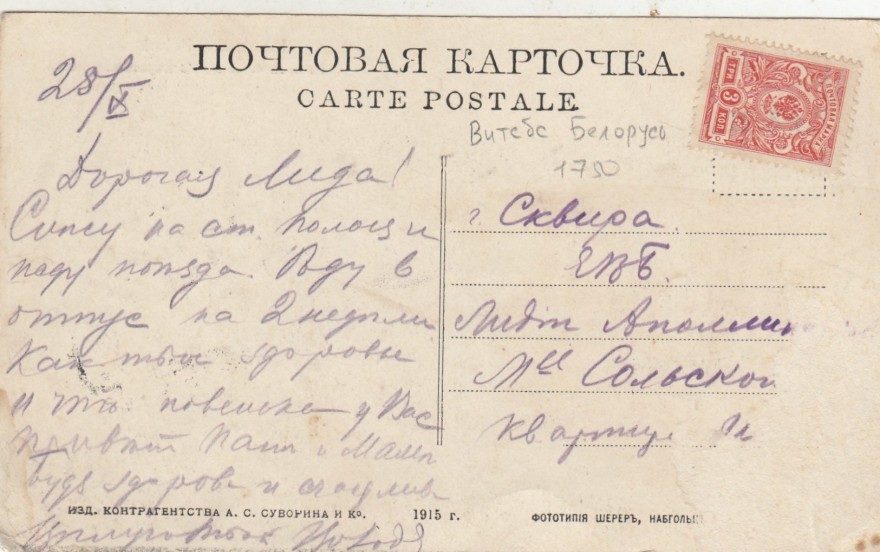 28/X
ПОЧТОВАЯ КАРТОЧКА.
CARTE POSTALE
ПОЧТОВАЯ МАРКА
ТРИ 3 КОП
Витебс Белорусь
1750
Дорогая Лида!
Сижу на ст. Полоцк и
жду поезда. Еду в
отпус на 2 недѣли
Как твое здоровье
и что у Вас
привѣт Папѣ и Мамѣ
Будь здорова и счастлива
г. Сквира.
ЕВБ.
Лидіи Аполлин
М Сольской
квартира
ИЗД. КОНТРАГЕНТСТВА А. С. СУВОРИНА И Ко. 1915 г.
ФОТОТИПІЯ ШЕРЕРЪ, НАБГОЛЬЦ